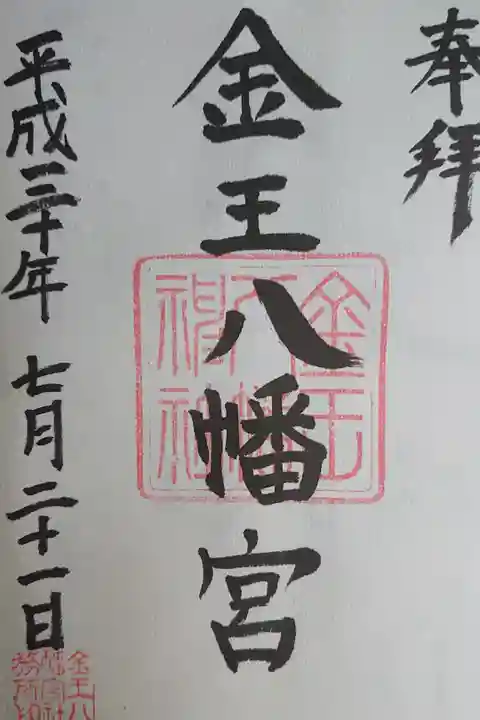 奉拝
金王八幡宮
金王八幡神社
平成三十年 七月二十一日
金王八幡宮社務所印